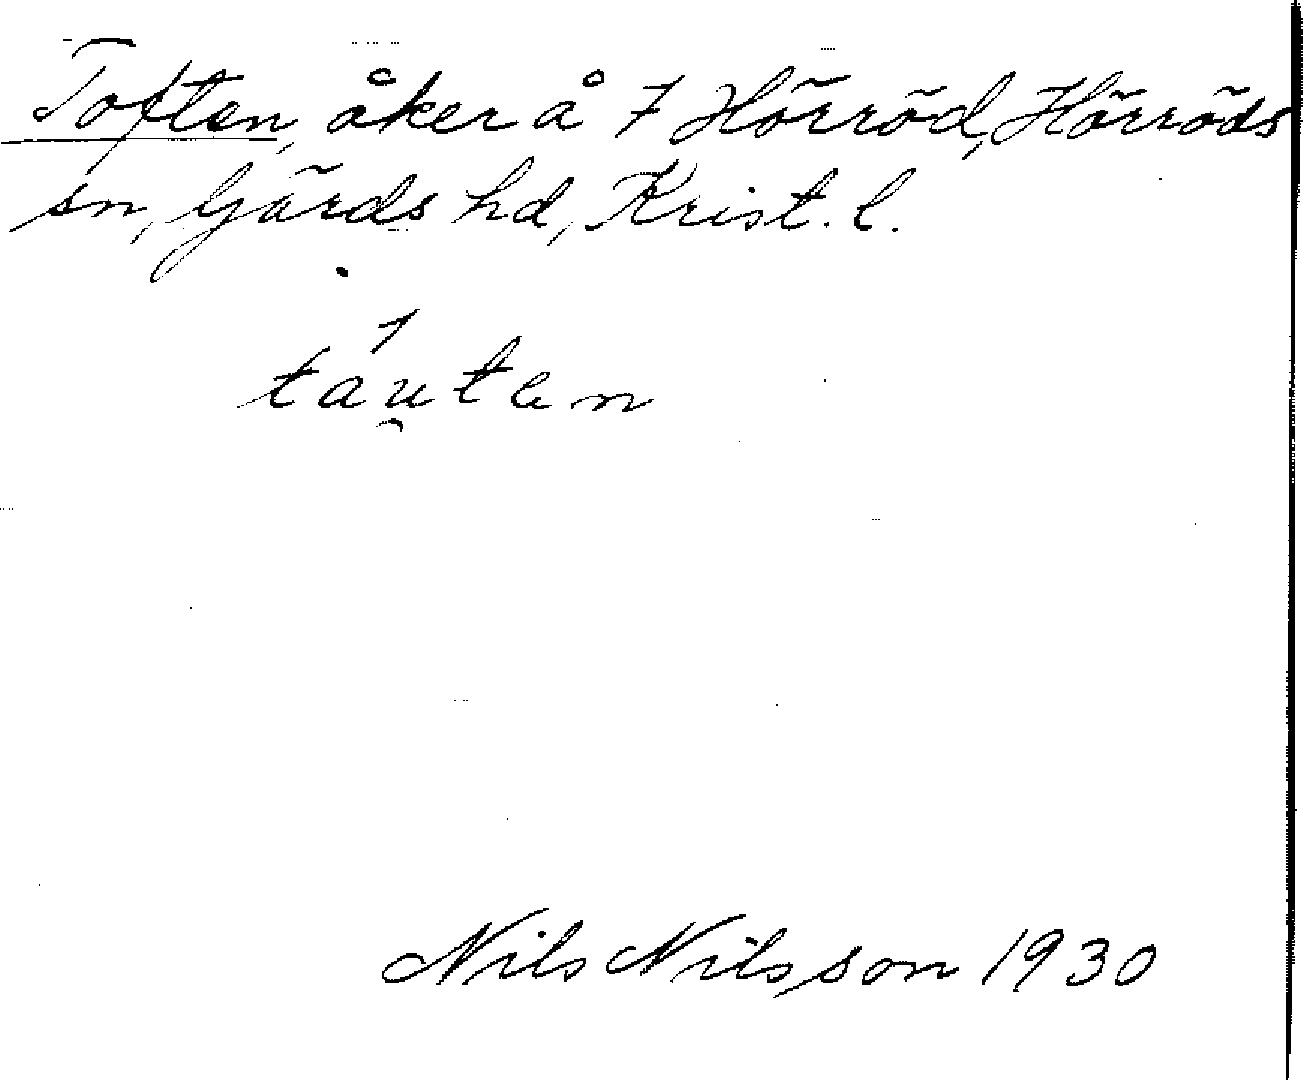 Toften, åker å 7 Hörröd, Hörröds
sn, Gärds hd, Krist. l.
táu̯ten
Nils Nilsson 1930